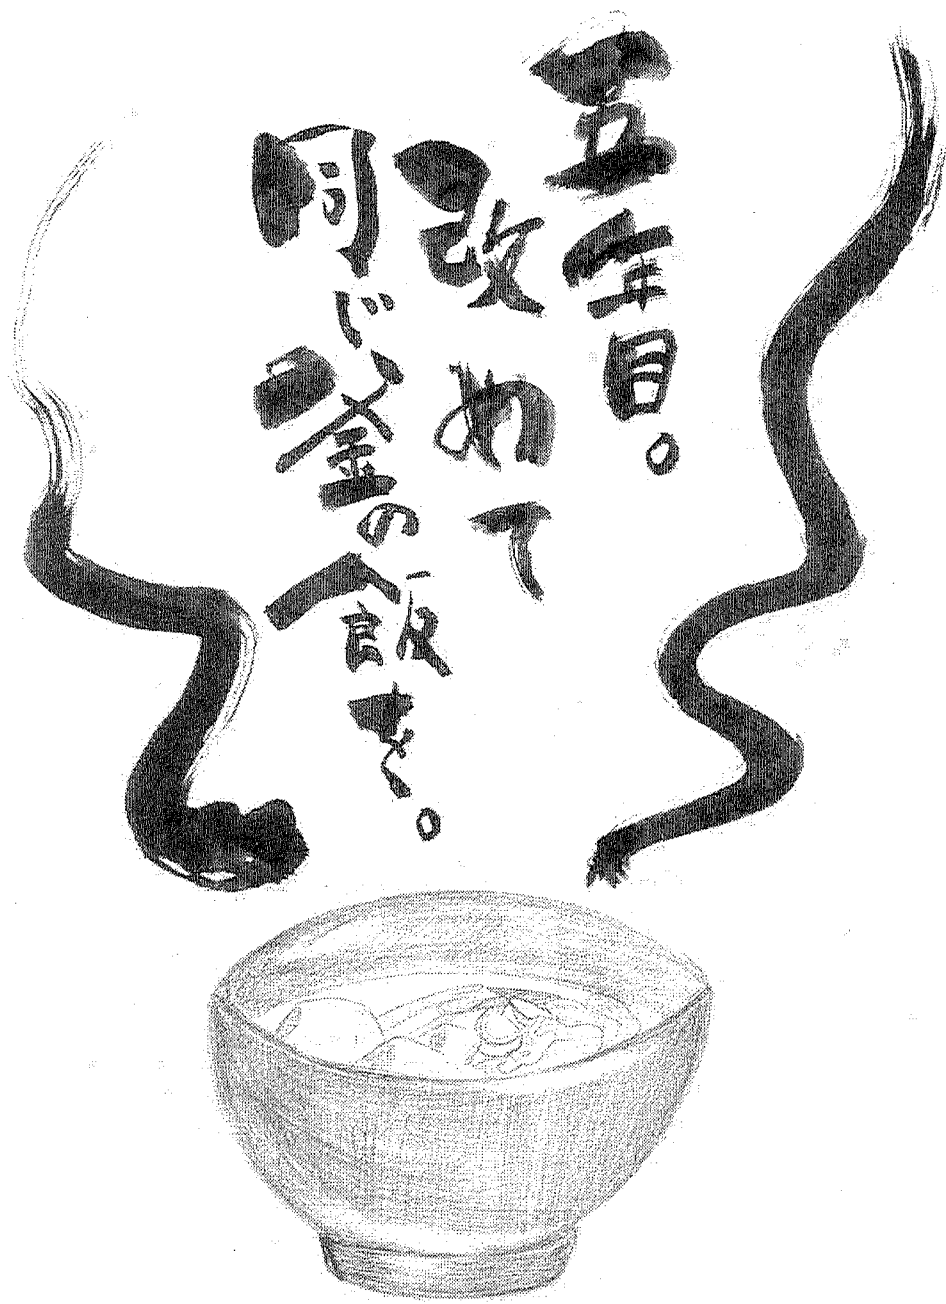 五年目。
改めて
同じ釜の飯を。